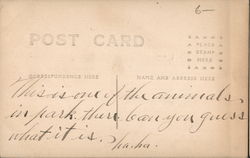 6-
POST CARD
PLACE
STAMP
HERE
CORRESPONDENCE HERE
NAME AND ADDRESS HERE
This is one of the animals
in park there. Can you guess
what it is. ha.ha.